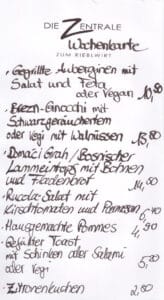 DIE ZENTRALE
Wochenkarte
ZUM RIESLWIRT
• Gegrillte Auberginen mit
Salat und Feta
oder vegan 10,50
• Brezn-Gnocchi mit
Schwarzgeräuchertem
oder vegi mit Walnüssen 13,80
• Domaći Grah / Bosnischer
Lammeintopf mit Bohnen
und Fladenbrot 14,50
• Rucola Salat mit
Kirschtomaten und Parmesan
• Hausgemachte Pommes 4,90
• Gefüllter Toast
mit Schinken oder Salami
oder vegi
• Zitronenkuchen 2,80